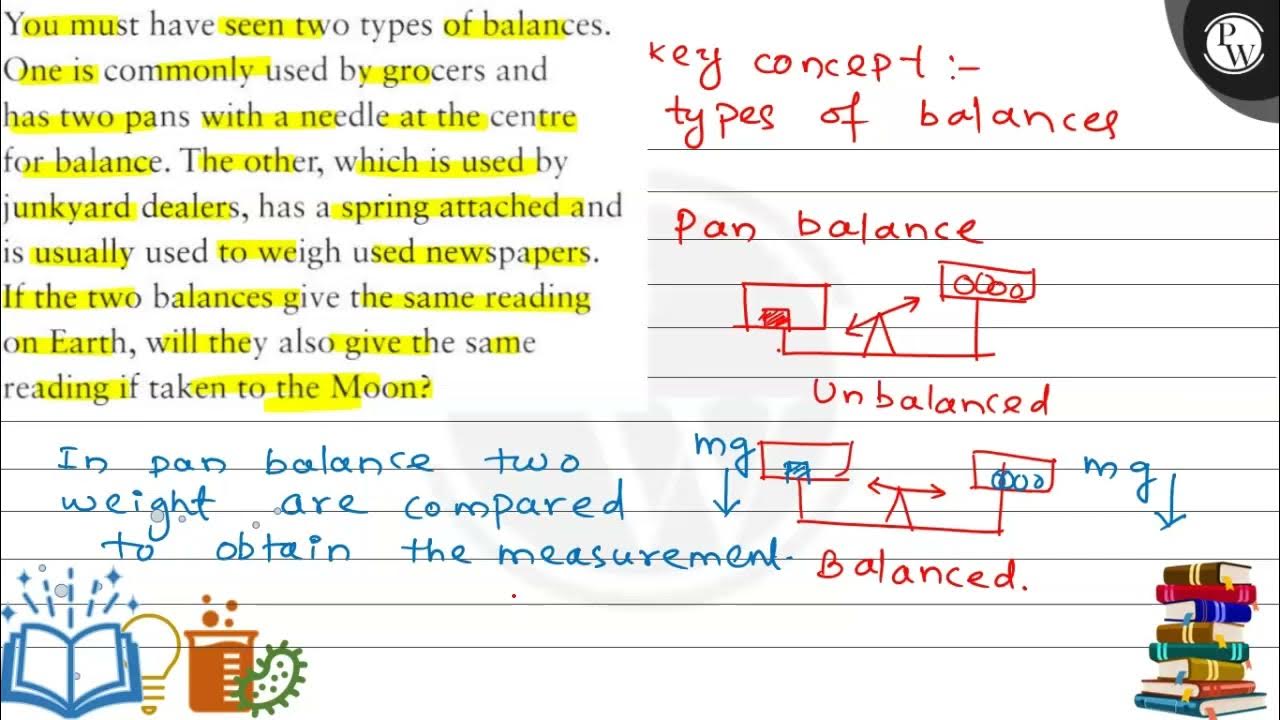 You must have seen two types of balances.
One is commonly used by grocers and
has two pans with a needle at the centre
for balance. The other, which is used by
junkyard dealers, has a spring attached and
is usually used to weigh used newspapers.
If the two balances give the same reading
on Earth, will they also give the same
reading if taken to the Moon?
Key concept :-
types of balances
PW
Pan balance
Unbalanced
In pan balance two
weight are compared
to obtain the measurement.
mg
mg
Balanced.